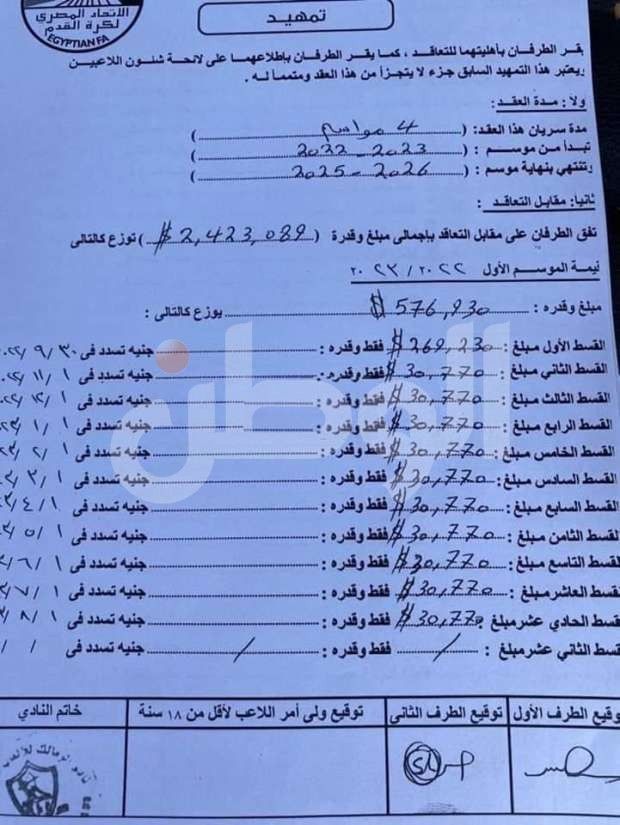 الاتحاد المصري
لكرة القدم
EGYPTIAN FA
تمهيد
يقر الطرفان بأهليتهما للتعاقد ، كما يقر الطرفان بإطلاعهما على لائحة شئون اللاعبين
ويعتبر هذا التمهيد السابق جزء لا يتجزأ من هذا العقد ومتمما له .
ولا : مدة العقد :
مدة سريان هذا العقد : ( 4 مواسم )
تبدأ من موسم : ( 2022 - 2023 )
وتنتهي بنهاية موسم : ( 2025 - 2026 )
ثانيا : مقابل التعاقد :
تفق الطرفان على مقابل التعاقد بإجمالى مبلغ وقدرة ( $ 2,423,089 ) توزع كالتالى
قيمة الموسم الأول ٢٠٢٣/٢٠٢٢
مبلغ وقدره : $ 576,930 يوزع كالتالى :
القسط الأول مبلغ : $ 269,230 فقط وقدره : جنيه تسدد فى ٩/٣٠
القسط الثاني مبلغ : $ 30,770 فقط وقدره : جنيه تسدد فى ١١/١
القسط الثالث مبلغ : $ 30,770 فقط وقدره : جنيه تسدد فى ١٢/١
القسط الرابع مبلغ : $ 30,770 فقط وقدره : جنيه تسدد فى ١/١
القسط الخامس مبلغ : $ 30,770 فقط وقدره : جنيه تسدد فى ٢/١
القسط السادس مبلغ : $ 30,770 فقط وقدره : جنيه تسدد فى ٣/١
القسط السابع مبلغ : $ 30,770 فقط وقدره : جنيه تسدد فى ٤/١
القسط الثامن مبلغ : $ 30,770 فقط وقدره : جنيه تسدد فى ٥/١
القسط التاسع مبلغ : $ 30,770 فقط وقدره : جنيه تسدد فى ٦/١
القسط العاشر مبلغ : $ 30,770 فقط وقدره : جنيه تسدد فى ٧/١
القسط الحادي عشر مبلغ : $ 30,770 فقط وقدره : جنيه تسدد فى ٨/١
القسط الثاني عشر مبلغ : / فقط وقدره : / جنيه تسدد فى / /
توقيع الطرف الأول توقيع الطرف الثانى توقيع ولى أمر اللاعب لأقل من ١٨ سنة خاتم النادي
الوطن